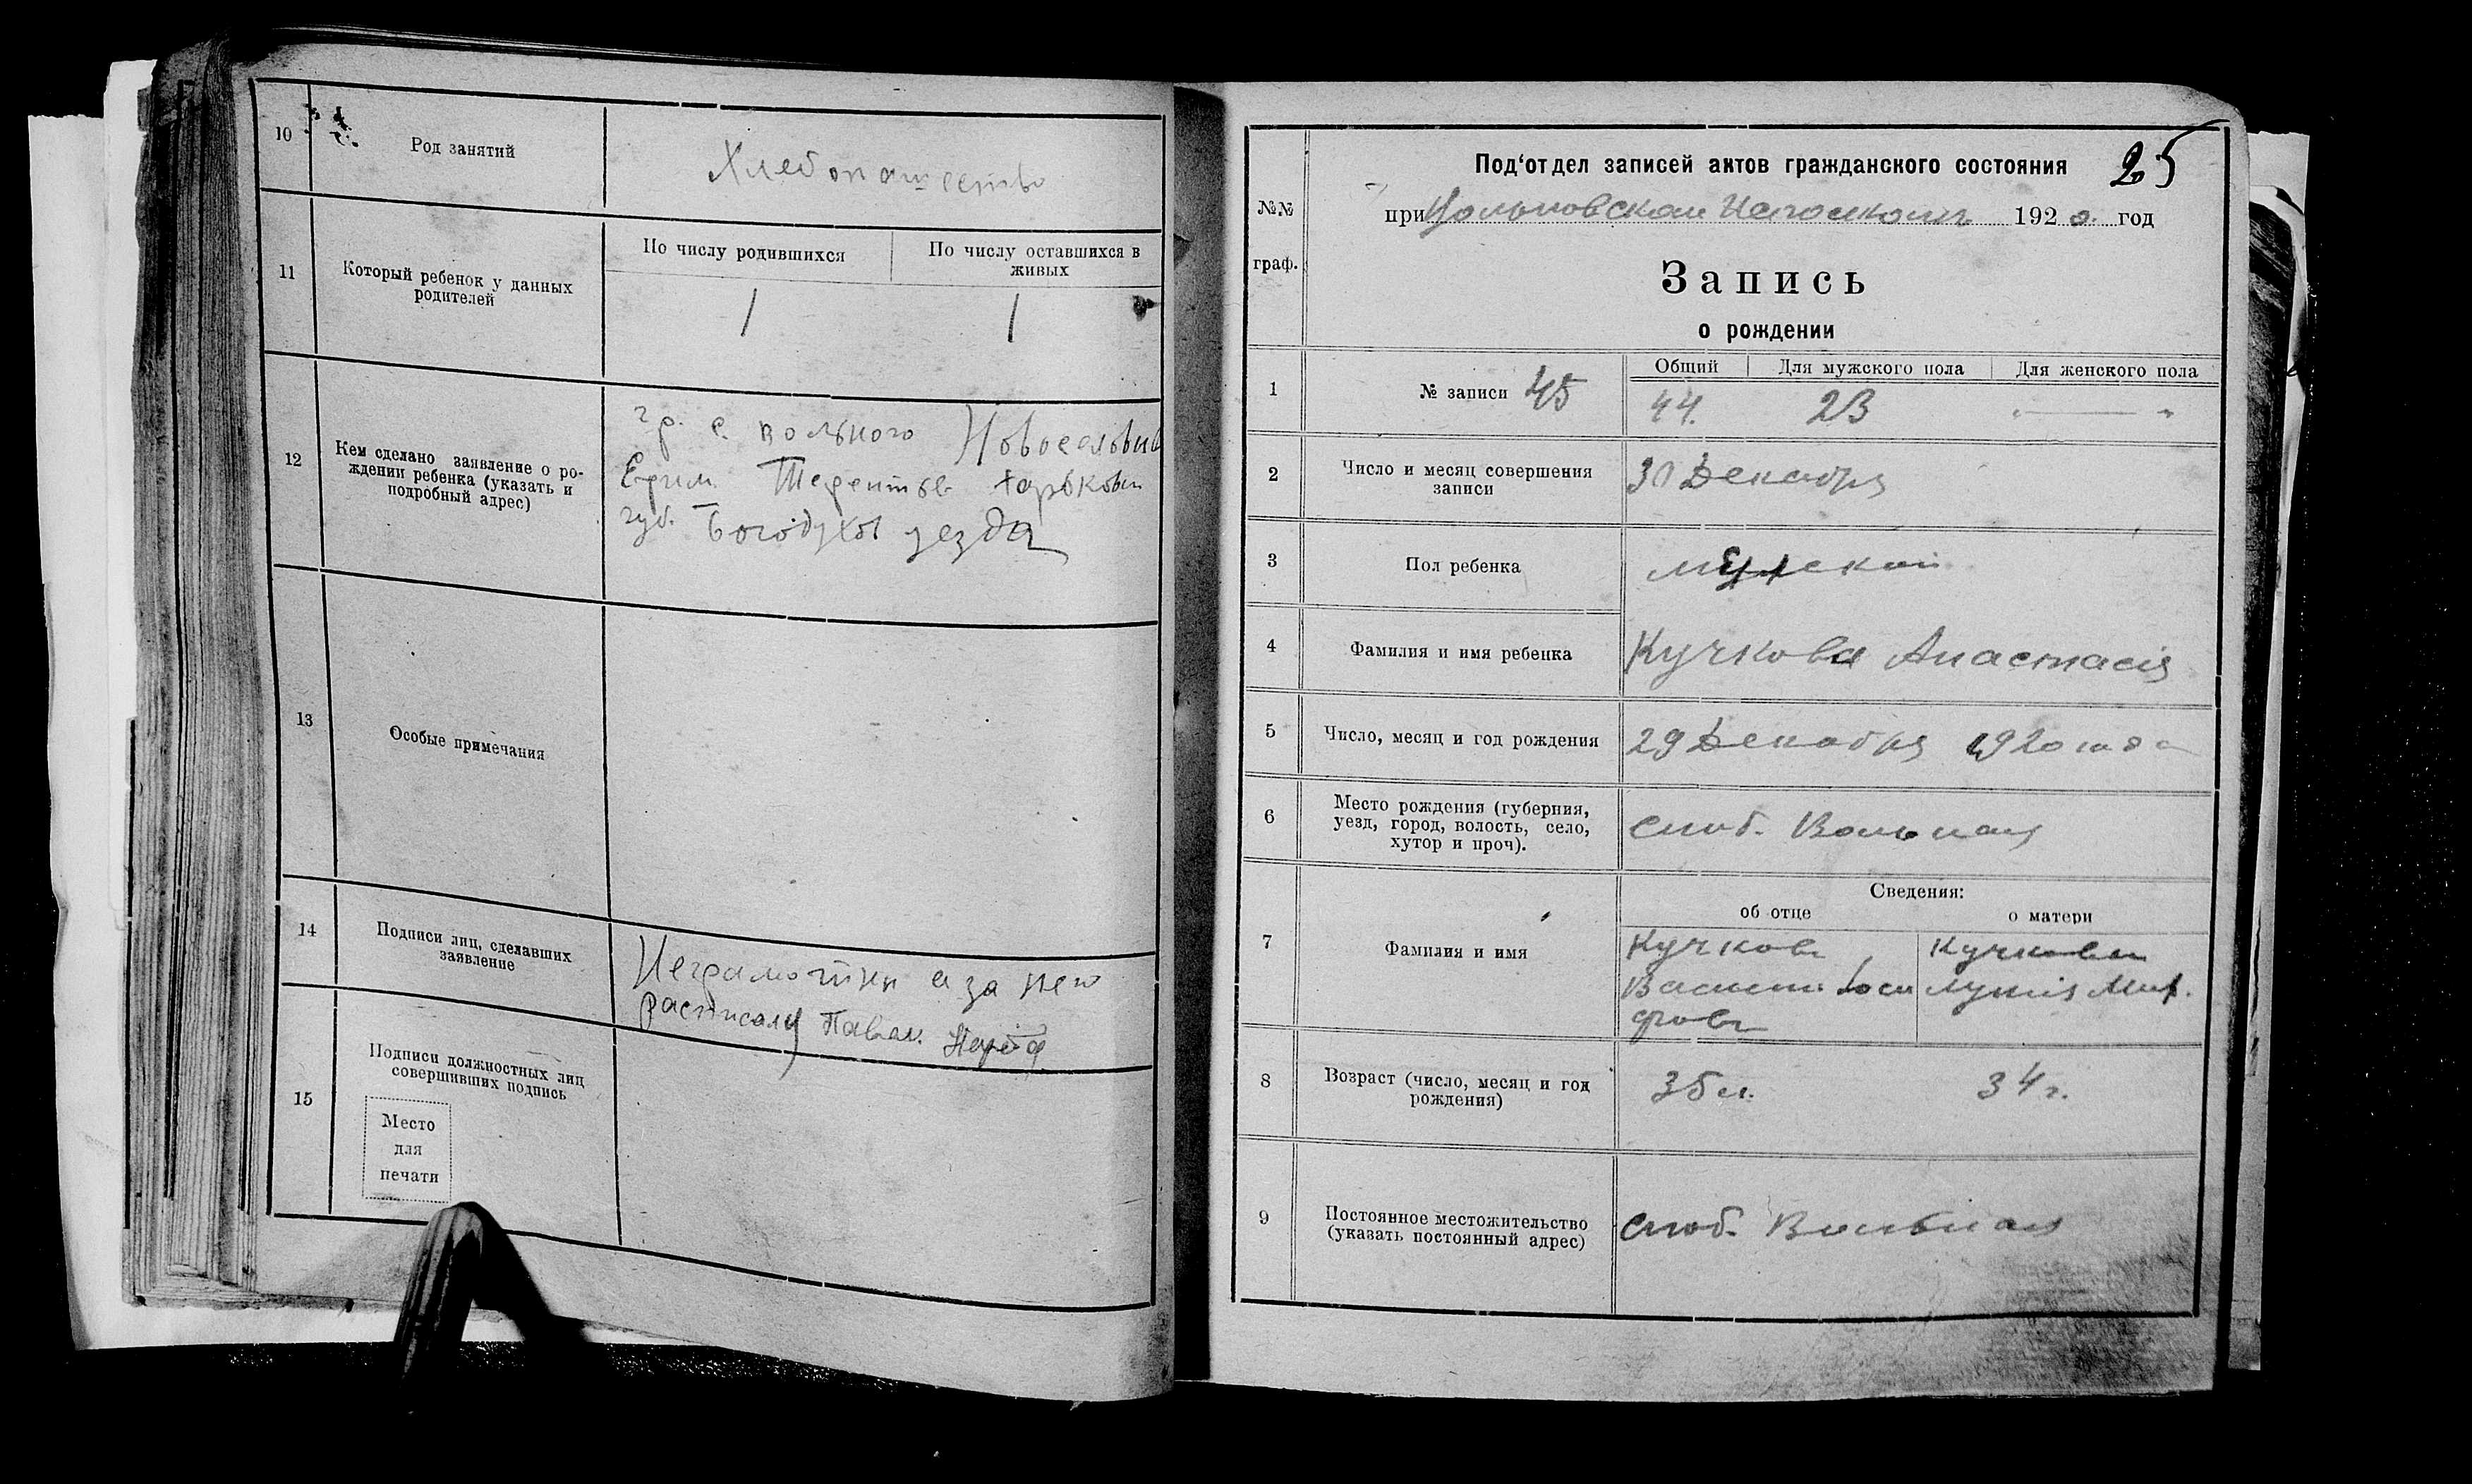 10
Род занятий
Хлебопашество
11
Который ребенок у данных
родителей
По числу родившихся
По числу оставшихся в
живых
1
1
12
Кем сделано заявление о ро-
ждении ребенка (указать и
подробный адрес)
гр. с. вольного
Терентьев Харьков
губ. Богодухов уезда
13
Особые примечания
14
Подписи лиц, сделавших
заявление
а за него
15
Подписи должностных лиц
совершивших подпись
Место
для
печати
25
№№
граф.
Под'отдел записей актов гражданского состояния
при 1920 год
Запись
о рождении
1
№ записи 45
Общий
Для мужского пола
Для женского пола
44.
23
" — "
2
Число и месяц совершения
записи
30 Декабря
3
Пол ребенка
мужской
4
Фамилия и имя ребенка
Кучкова Анастасія
5
Число, месяц и год рождения
29 Декабря 1920 года
6
Место рождения (губерния,
уезд, город, волость, село,
хутор и проч).
слоб. Вольная
7
Фамилия и имя
Сведения:
об отце
о матери
Кучковъ
Кучкова
8
Возраст (число, месяц и год
рождения)
35 л.
34 г.
9
Постоянное местожительство
(указать постоянный адрес)
слоб. Вольная